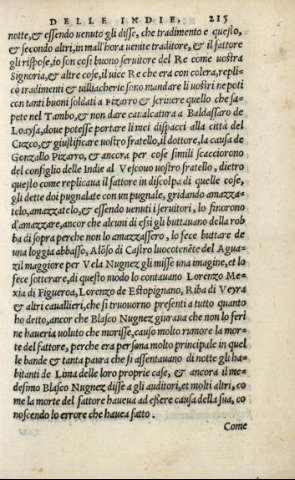 DELLE INDIE. 215
notte, & essendo uenuto gli disse, che tradimento e questo,
& secondo altri, in mall'hora uenite traditore, & il fattore
gli rispose, io son cosi buono seruitore del Re come uostra
Signoria, & altre cose, il uice Re che era con colera, repli-
co tradimenti & uilliacherie sono mandare li uostri nepoti
con tanti buoni soldati a Pizaro & scriuere quello che sa-
pete nel Tambo, & non dare caualcatura a Baldassaro de
Loaysa, doue potesse portare li miei dispacci alla città del
Cuzco, & giustificare uostro fratello, il dottore, la causa de
Gonzallo Pizarro, & ancora per cose simili scacciorono
del consiglio delle Indie al Vescouo uostro fratello, dietro
questo come replicaua il fattore in discolpa di quelle cose,
gli dette doi pugnalate con un pugnale, gridando amazza-
telo, amazzatelo, & essendo uenuti i seruitori, lo finorono
d'amazzare, ancor che alcuni di essi gli buttauano della rob
ba di sopra perche non lo amazzassero, lo fece buttare de
una loggia abbasso, Alõso di Castro luocotenẽte del Agua-
zil maggiore per Vela Nugnez gli misse una imagine, et lo
fece sotterare, di questo modo lo contauano Lorenzo Me-
xia di Figueroa, Lorenzo de Estopignano, Riba di Veyra
& altri cauallieri, che si truouorno presenti a tutto quanto
ho dritto, ancor che Blasco Nugnez giuraua che non lo feri
ne haueria uoluto che morisse, causo molto rumore la mor-
te del fattore, perche era persona molto principale in quel
le bande & tanta paura che si assentauano di notte gli ha-
bitanti de Lima delle loro proprie case, & ancora il me-
desimo Blasco Nugnez disse a gli auditori, et molti altri, co
me la morte del fattore haueua ad essere causa della sua, co
noscendo lo errore che haueua fatto.
Come